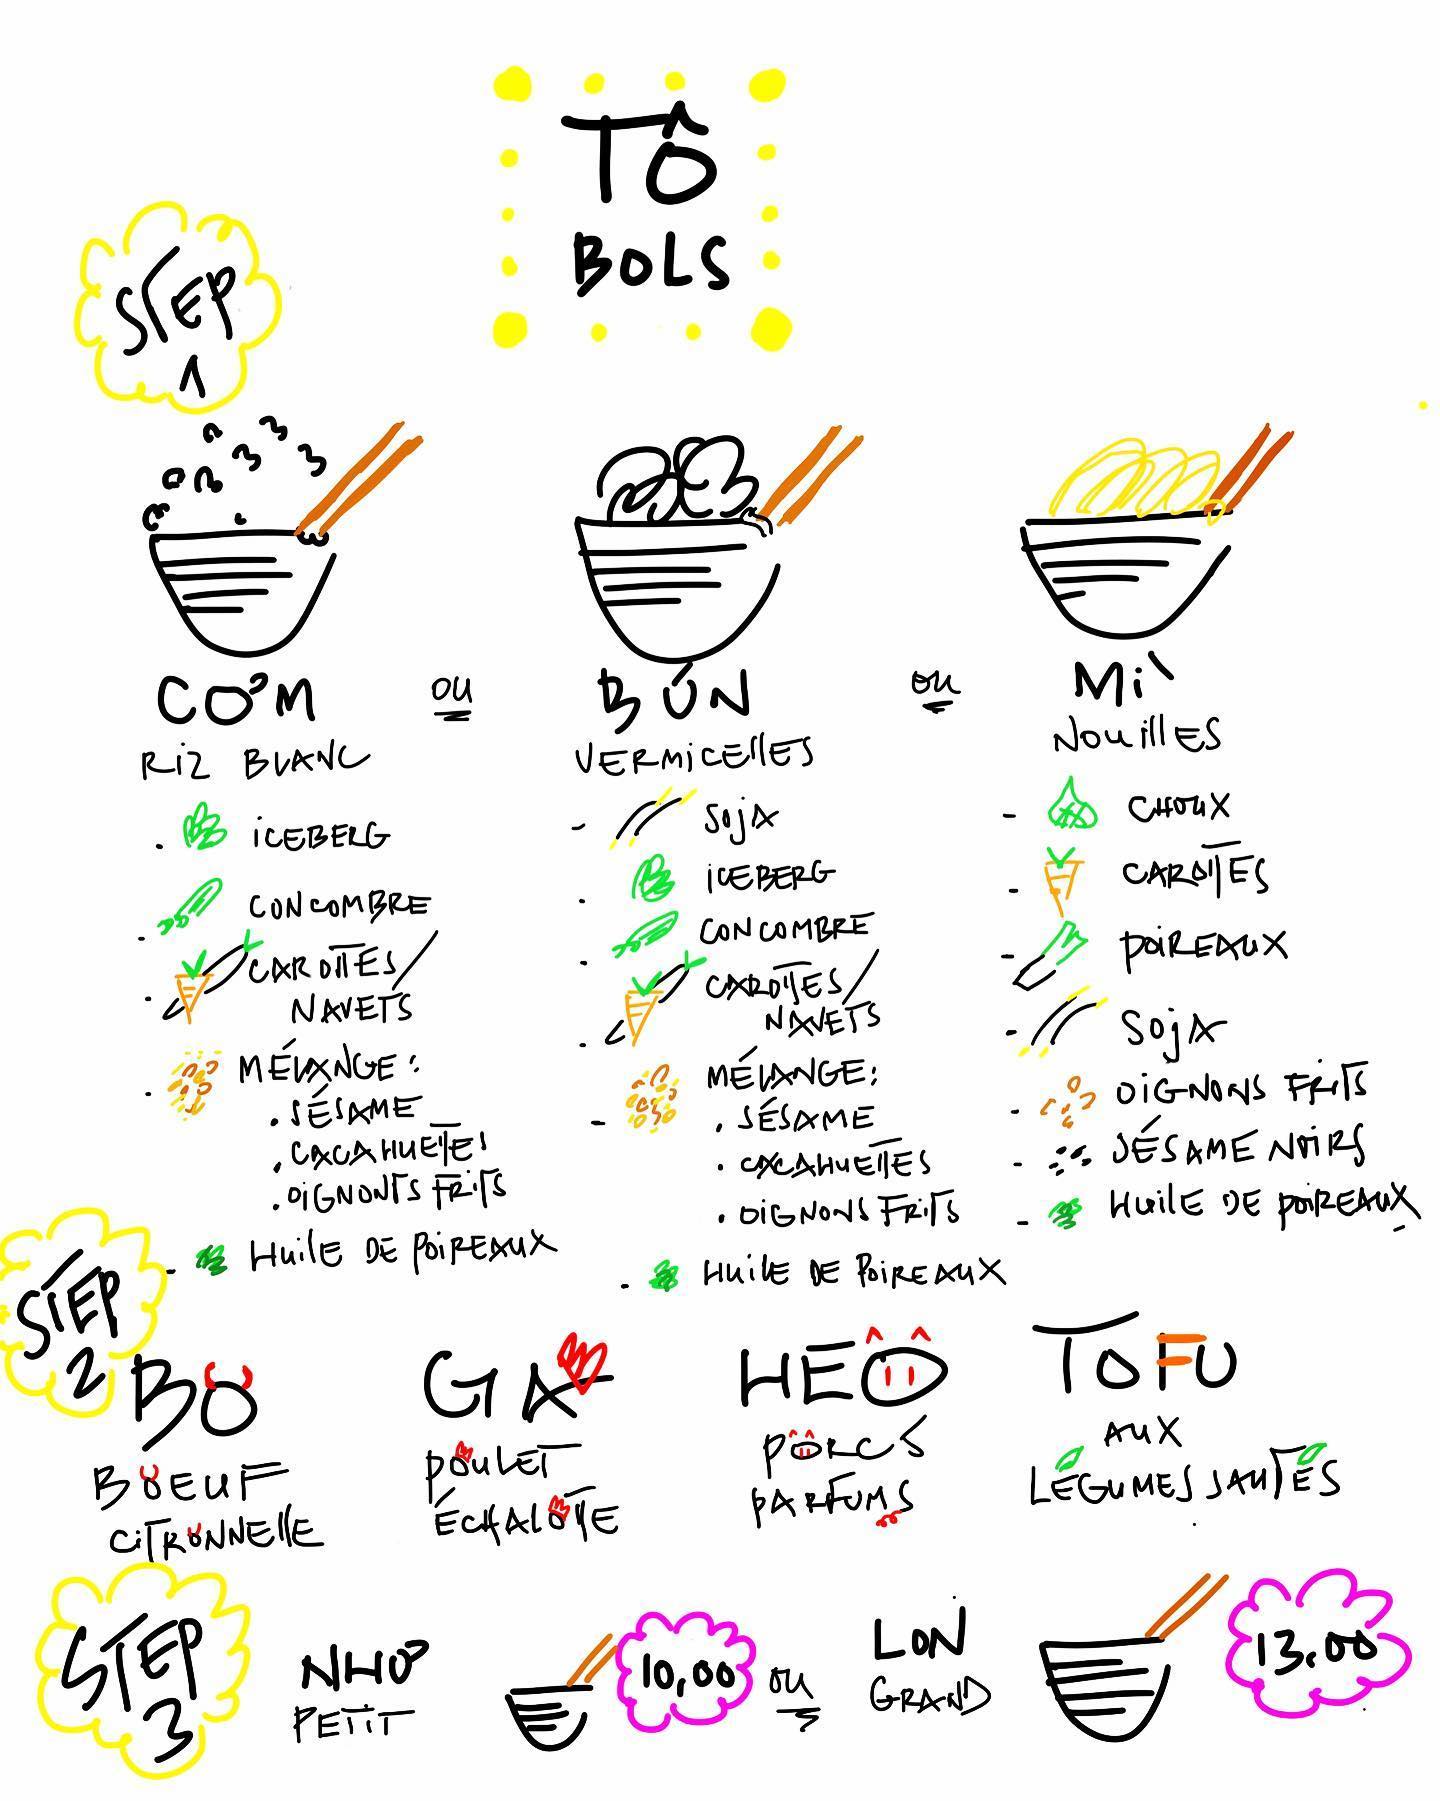 TÔ
BOLS
STEP
1
CO'M
RIZ BLANC
ICEBERG
CONCOMBRE
CAROTTES/
NAVETS
MÉLANGE :
. SÉSAME
. CACAHUETTES
. OIGNONTS FRITS
- HUILE DE POIREAUX
OU
BÚN
VERMICELLES
- SOJA
ICEBERG
CONCOMBRE
CAROTTES/
NAVETS
MÉLANGE :
. SÉSAME
. CACAHUETTES
. OIGNONS FRITS
HUILE DE POIREAUX
OU
Mì
NOUILLES
- CHOUX
- CAROTTES
- POIREAUX
- SOJA
- OIGNONS FRITS
- SÉSAME NOIRS
- HUILE DE POIREAUX
STEP
2
BO
BOEUF
CITRONNELLE
GA
POULET
ÉCHALOTTE
HEO
PORCS
PARFUMS
TOFU
AUX
LÉGUMES SAUTÉS
STEP
3
NHO'
PETIT
10,00
OU
LON
GRAND
13,00